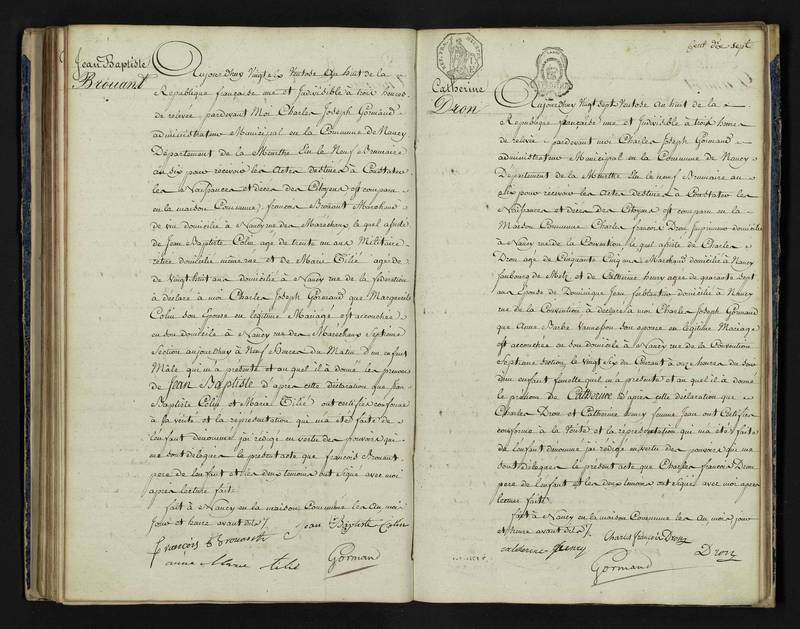 Jean Baptiste
Brouant
Aujourdhuy Vingt Ventose An huit de la
République française une et Indivisible à trois heures
de relevée pardevant Moi Charles Joseph Gormand
administrateur Municipal en la Commune de Nancy
Département de la Meurthe Elu le Neuf Brumaire
an six pour recevoir les Actes destinés à Constater
les Naissances et décès des Citoyens est comparu
en la maison Commune françois Brouant Marchand
de vin domicilié à Nancy rue des Maréchaux lequel assisté
de Jean Baptiste Colin agé de trente un ans Militaire
retiré domicilié même rue et de Marie Tilié agée de
de vingt huit ans domiciliée à Nancy rue de la fédération
à déclaré à moi Charles Joseph Gormand que Marguerite
Colin son Epouse en légitime Mariage est accouchée
en son domicile à Nancy rue des Maréchaux Septième
Section aujourdhuy à Neuf heures du Matin d'un enfant
Mâle qui m'a présenté et au quel il à donné le prénom
de Jean Baptiste d'après cette déclaration que Jean
Baptiste Colin et Marie Tilié ont certifiés conforme
à la vérité et la représentation qui m'a été faite de
l'enfant dénommé j'ai rédigé en vertu des pouvoirs qui
me sont délégués le présent acte que françois Brouant
pere de l'enfant et les deux temoins ont signé avec moi
après lecture faite
fait à Nancy en la maison Commune les An moi
Jour et heure avant dits
Jean Baptiste Colin
françois Brouant
anne Marie tilié
Gormand
Cent dix sept
Catherine
Dron
Aujourdhuy Vingt sept Ventose an huit de la
République française une et Indivisible à trois heures
de relevée pardevant moi Charles Joseph Gormand
administrateur Municipal en la Commune de Nancy
Département de la Meurthe Elu le neuf Brumaire an
six pour recevoir les Actes destinés à Constater les
Naissances et Décès des Citoyens est comparu en la
Maison Commune Charles françois Dron domicilié
à Nancy rue de la Convention lequel assisté de Charles
Dron agé de Cinquante Cinq ans Marchand domicilié à Nancy
faubourg de Metz et de Catherine henry agée de quarante Sept
ans Epouse de Dominique Jean ferblantier domicilié à Nancy
rue de la Convention à déclaré à moi Charles Joseph Gormand
que Anne Barbe son epouse en légitime Mariage
est accouchée en son domicile à Nancy rue de la Convention
Septieme section le vingt six du Courant à onze heures du soir
d'un enfant femelle qu'il m'a présenté et au quel il à donné
le prénom de Catherine d'après cette déclaration que
Charles Dron et Catherine henry femme Jean ont Certifiés
conforme à la Vérité et la représentation qui m'a été faite
de l'enfant dénommé j'ai rédigé en vertu des pouvoirs qui me
sont délégués le présent acte que Charles françois Dron
pere de l'enfant et les deux temoins ont signé avec moi après
lecture faite
fait à Nancy en la maison Commune les An moi jour
et heure avant dits
Charle françois Dron
catherine henry
Dron
Gormand